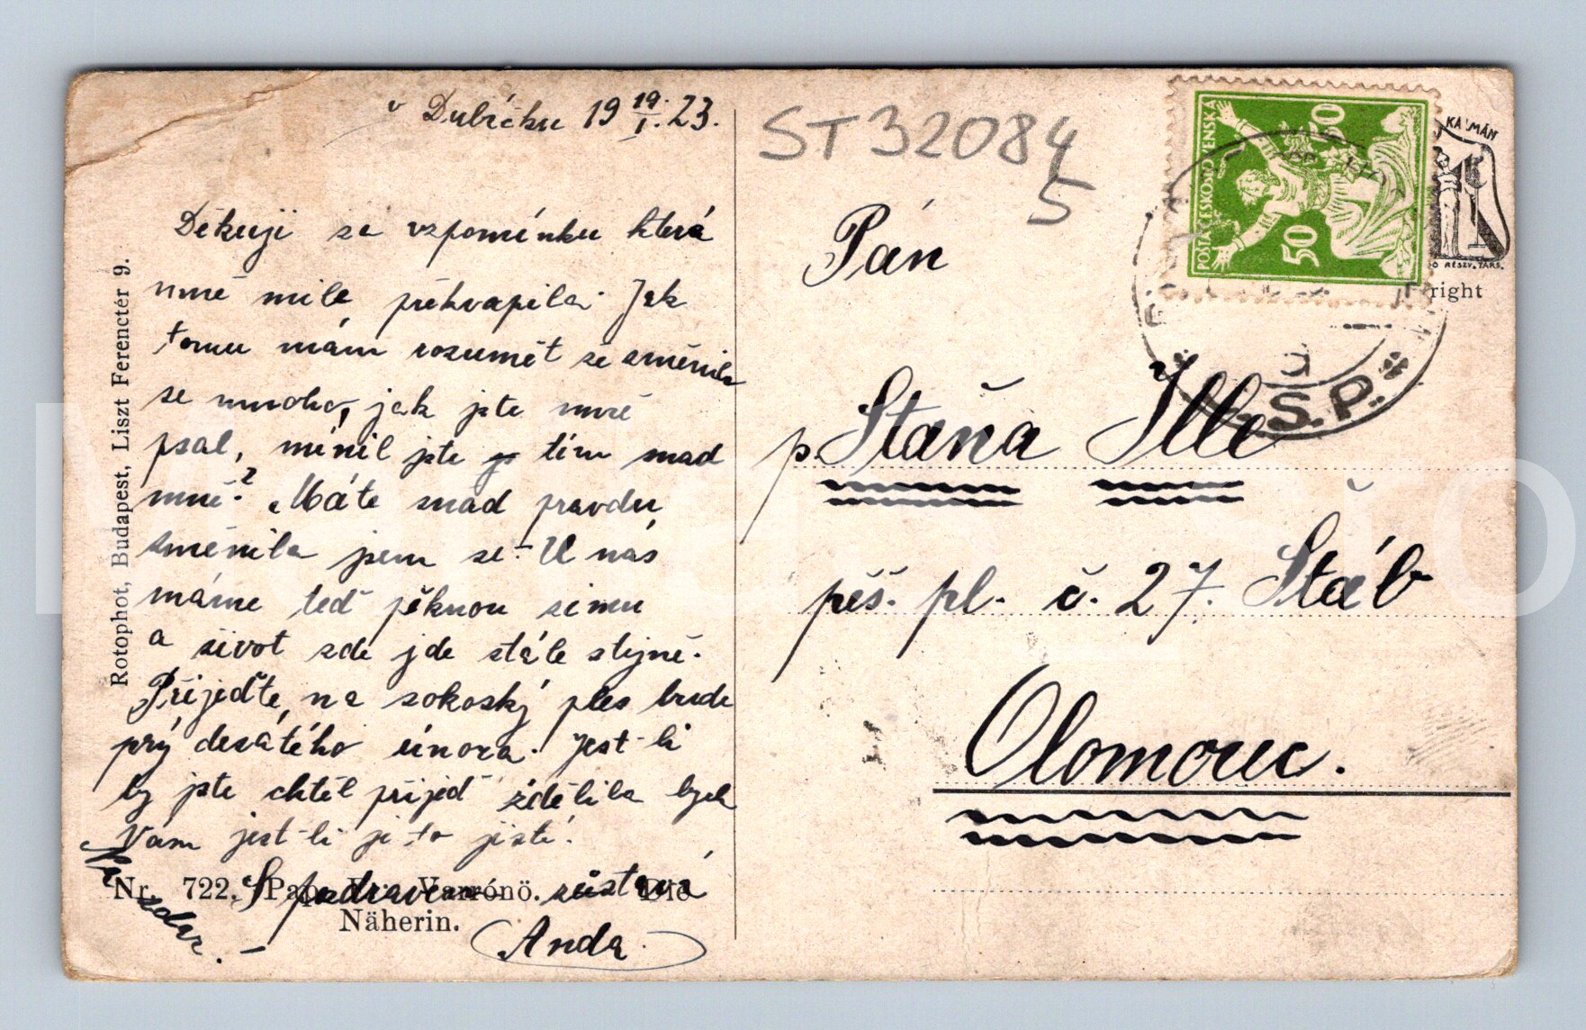 v Dubičku 19 19/I. 23.
Děkuji za vzpomínku která
mně mile překvapila. Jak
tomu mám rozumět že změnila
se mnoho, jak jste mně
psal, mínil jste tím snad
mně? Máte snad pravdu
změnila jsem se. U nás
máme teď pěknou zimu
a život zde jde stále stejně.
Přijeďte na sokolský ples bude
prý desátého února. Jest-li
by jste chtěl přijeď zdělila bych
Vám jest-li je to jisté.
S pozdravem zůstává
Anda
Na zdar.
Nr. 722.
Näherin.
Rotophot, Budapest, Liszt Ferenctér 9.
ST32084
5
POŠTA ČESKOSLOVENSKÁ
50 50
KÁLMÁN
right
S.P.
Pán
p. Staňa Ille
pěš. pl. č. 27. Štáb
Olomouc.